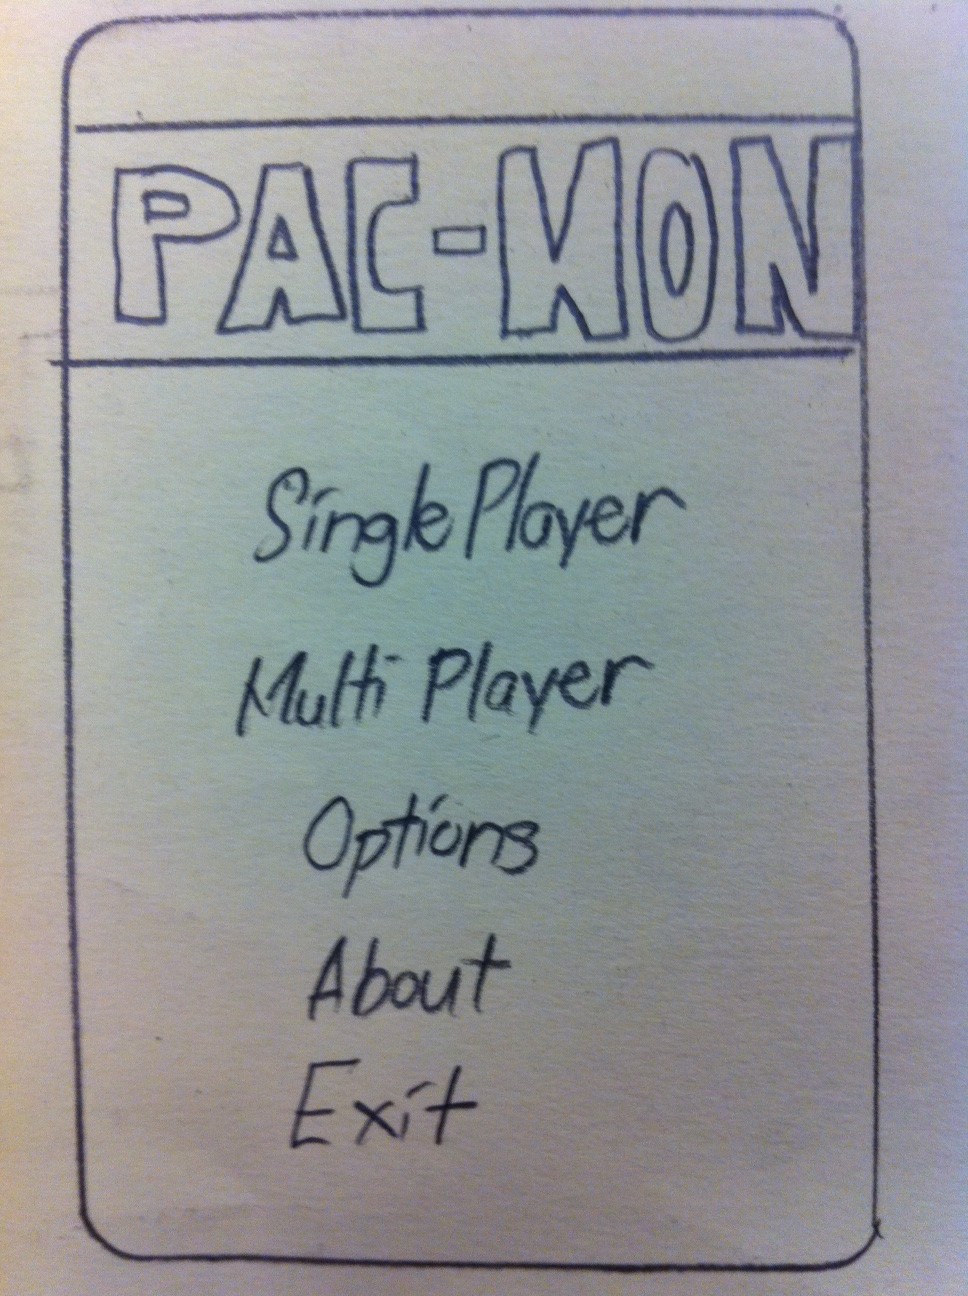 PAC-MON
Single Player
Multi Player
Options
About
Exit